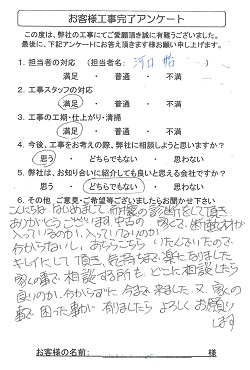 お客様工事完了アンケート
この度は、弊社の工事にてご愛顧頂き誠に有難うございました。
最後に、下記アンケートにお答え頂きます様お願い申し上げます。
1. 担当者の対応 (担当者名: 河口 )
満足 ・ 普通 ・ 不満
2. 工事スタッフの対応
満足 ・ 普通 ・ 不満
3. 工事の工期・仕上がり・清掃
満足 ・ 普通 ・ 不満
4. 今後、工事をお考えの際、弊社に相談しようと思いますか?
思う ・ どちらでもない ・ 思わない
5. 弊社は、お知り合いに紹介しても良いと思える会社ですか?
思う ・ どちらでもない ・ 思わない
6. その他 ご意見・ご希望等ございましたらお聞かせ下さい
こんにちは はじめまして 耐震の診断をして頂き
ありがとうございます 中古の 家で、断熱材が
入っているのか、入ってないのか
分からないし、あちらこちら いたんでいたので、
キレイにして頂き、気持ちまで楽になりました
家の事で 相談する所も、どこに相談したら
良いのか、分からずに 今まで来ました 又、家の
事で 困った事が 有りましたら よろしくお願い
します
お客様の名前: 様